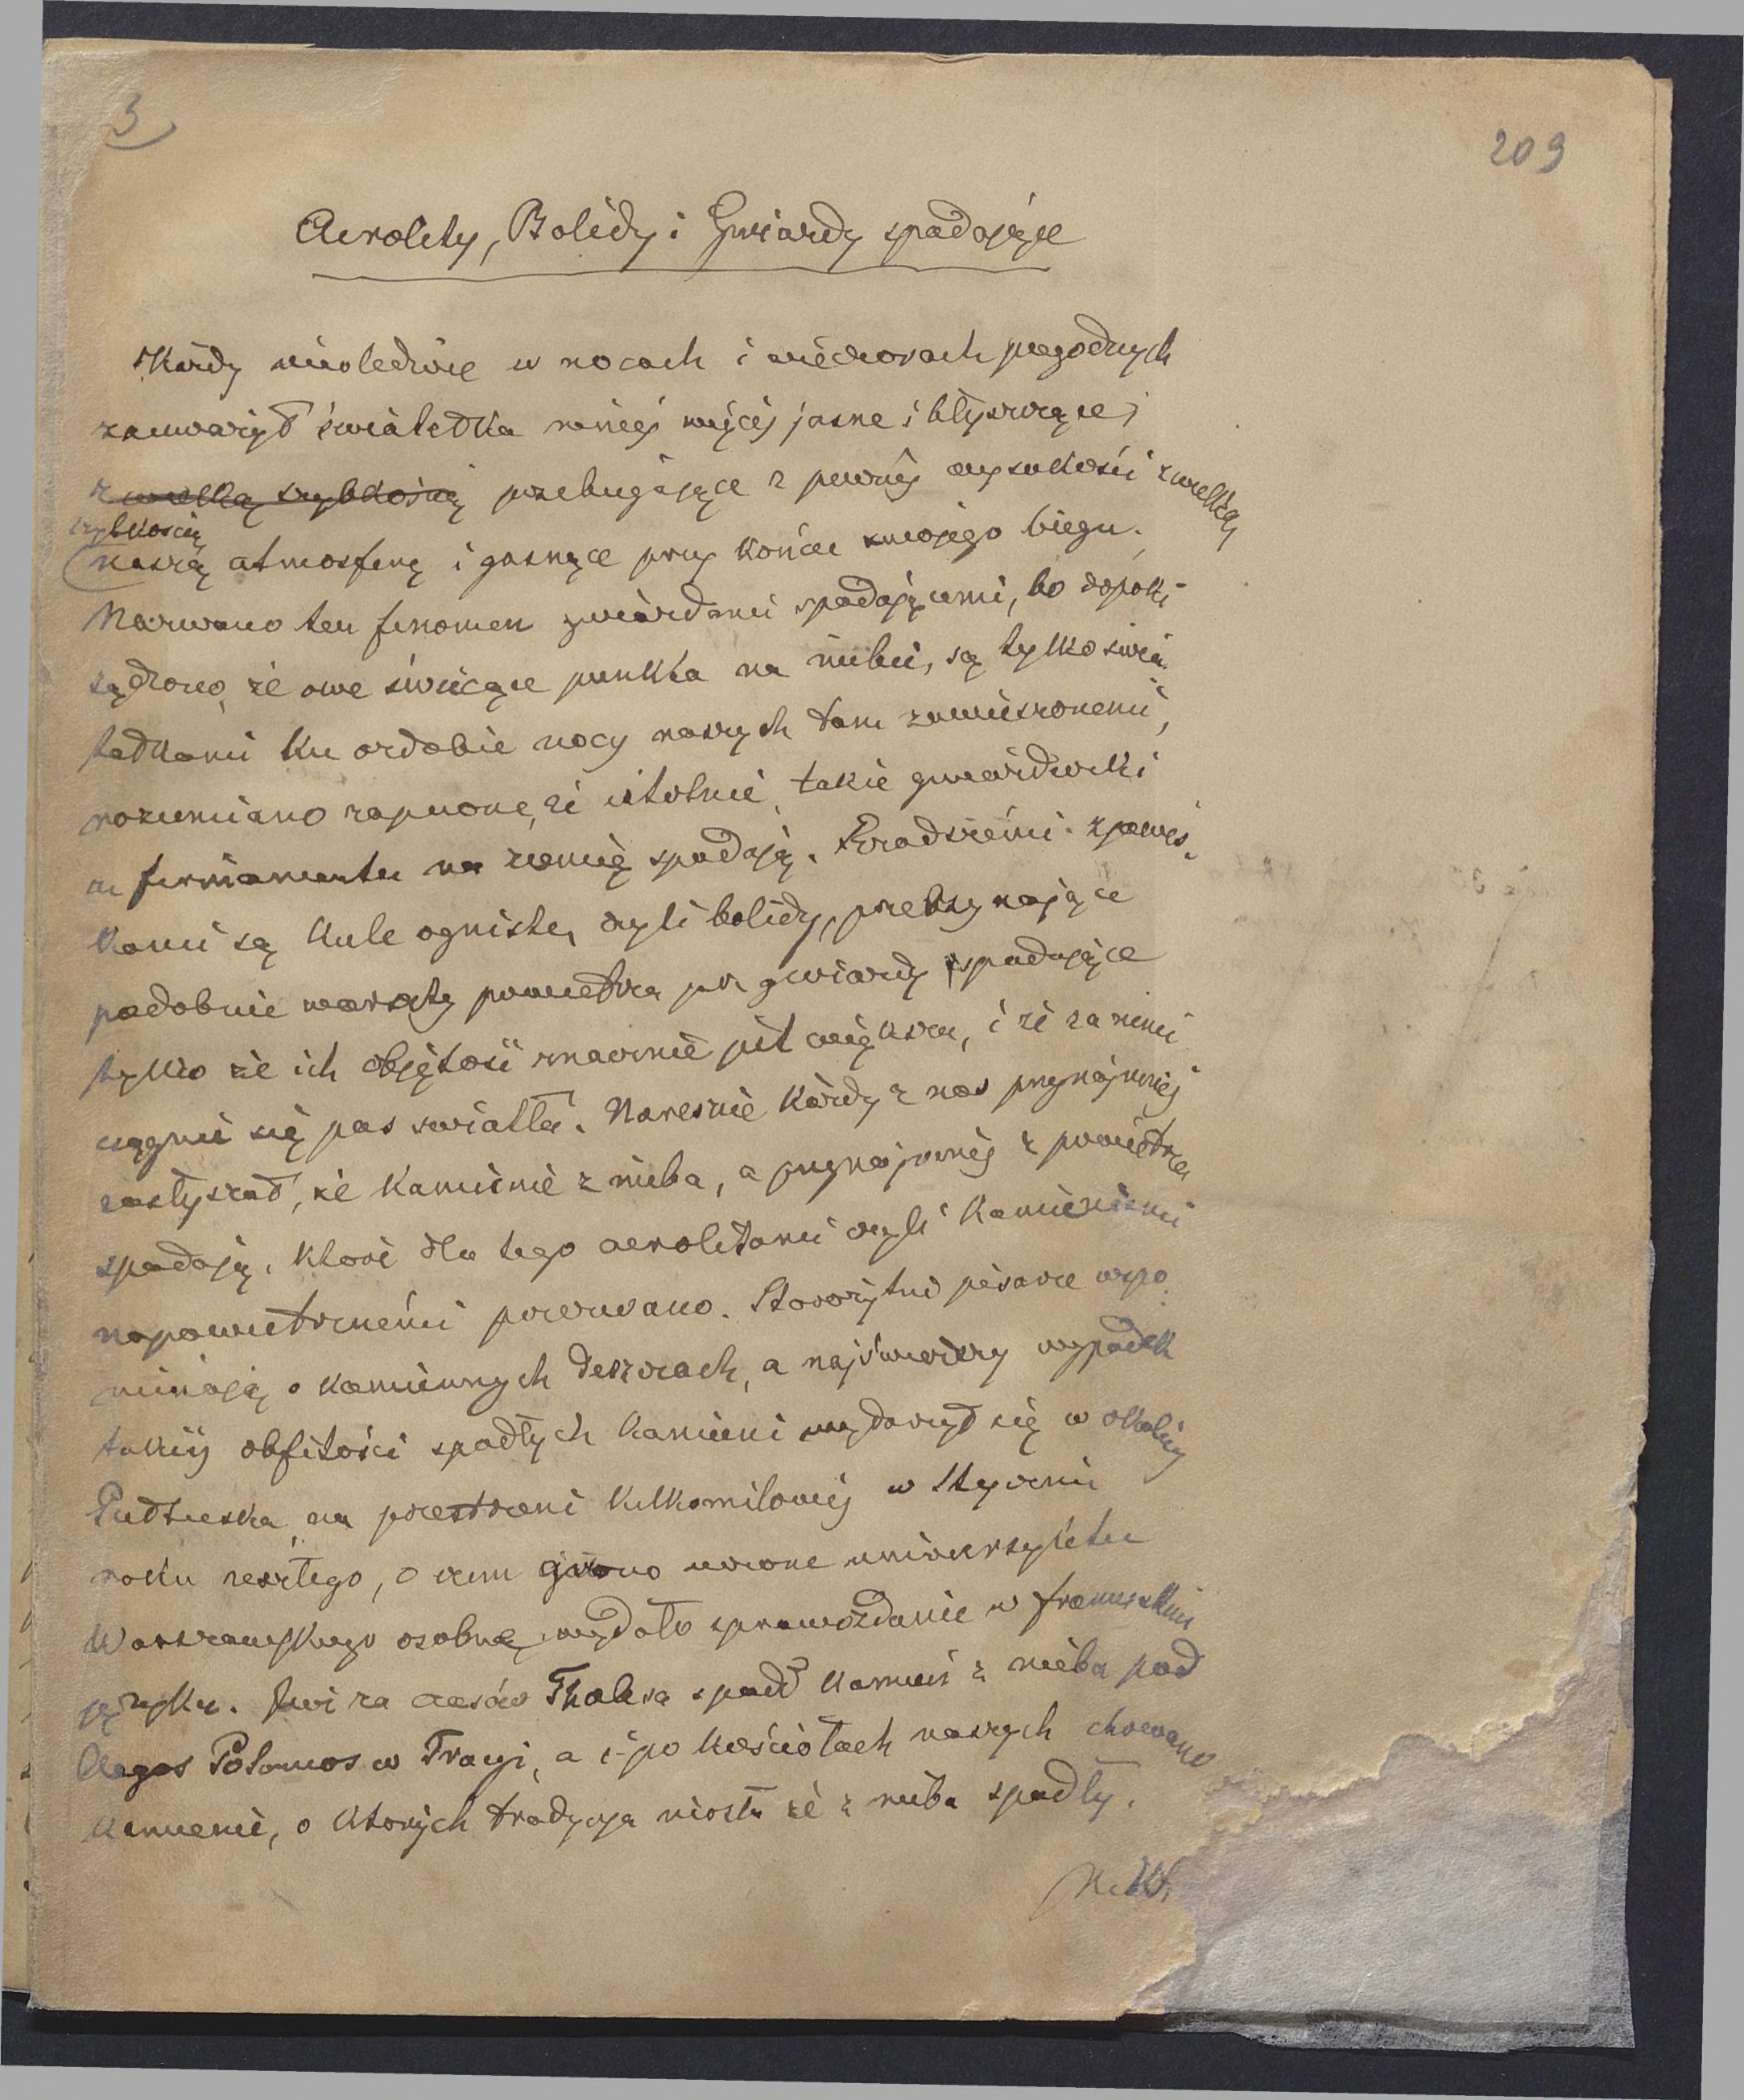 3
209
Aerolity, Bolidy i Gwiazdy spadające
Każdy niewątpliwie w nocach i wieczorach pogodnych
zauważył światełka mniej więcej jasne i błyszczące,
z wielką szybkością przebiegające z pewnej wysokości z wielką
szybkością
naszą atmosferę i gasnące przy końcu swojego biegu.
Nazwano ten fenomen gwiazdami spadającemi, bo dopóki
sądzono, że owe świecące punkta na niebie, są tylko świa-
tełkami ku ozdobie nocy naszych tam zawieszonemi,
rozumiano zapewne, że istotnie takie gwiazdeczki
z firmamentu na ziemię spadają.
kami są kule ogniste, czyli bolidy, przebiegające
podobnie warsty powietrza jak gwiazdy spadające
tylko że ich objętość znacznie jest większa, i że za niemi
ciągnie się pas światła. Nareszcie każdy z nas przynajmniej
zasłyszał, że kamienie z nieba, a przynajmniej z powietrza
spadają, które dla tego aerolitami czyli kamieniami
napowietrznemi przezwano. Starożytni pisarze wspo-
minają o kamiennych deszczach, a najświeższy wypadek
takiej obfitości spadłych kamieni wydarzył się w okolicy
Pułtuska na przestrzeni kilkomilowej w styczniu
roku zeszłego, o czem grono uczone uniwersytetu
Warszawskiego osobne wydało sprawozdanie w francuskim
języku. Już za czasów Thalesa spadł kamień z nieba pod
Aegos Potamos w Tracyi, a i po kościołach naszych chowano
kamienie, o których tradycya niosła że z nieba spadły.